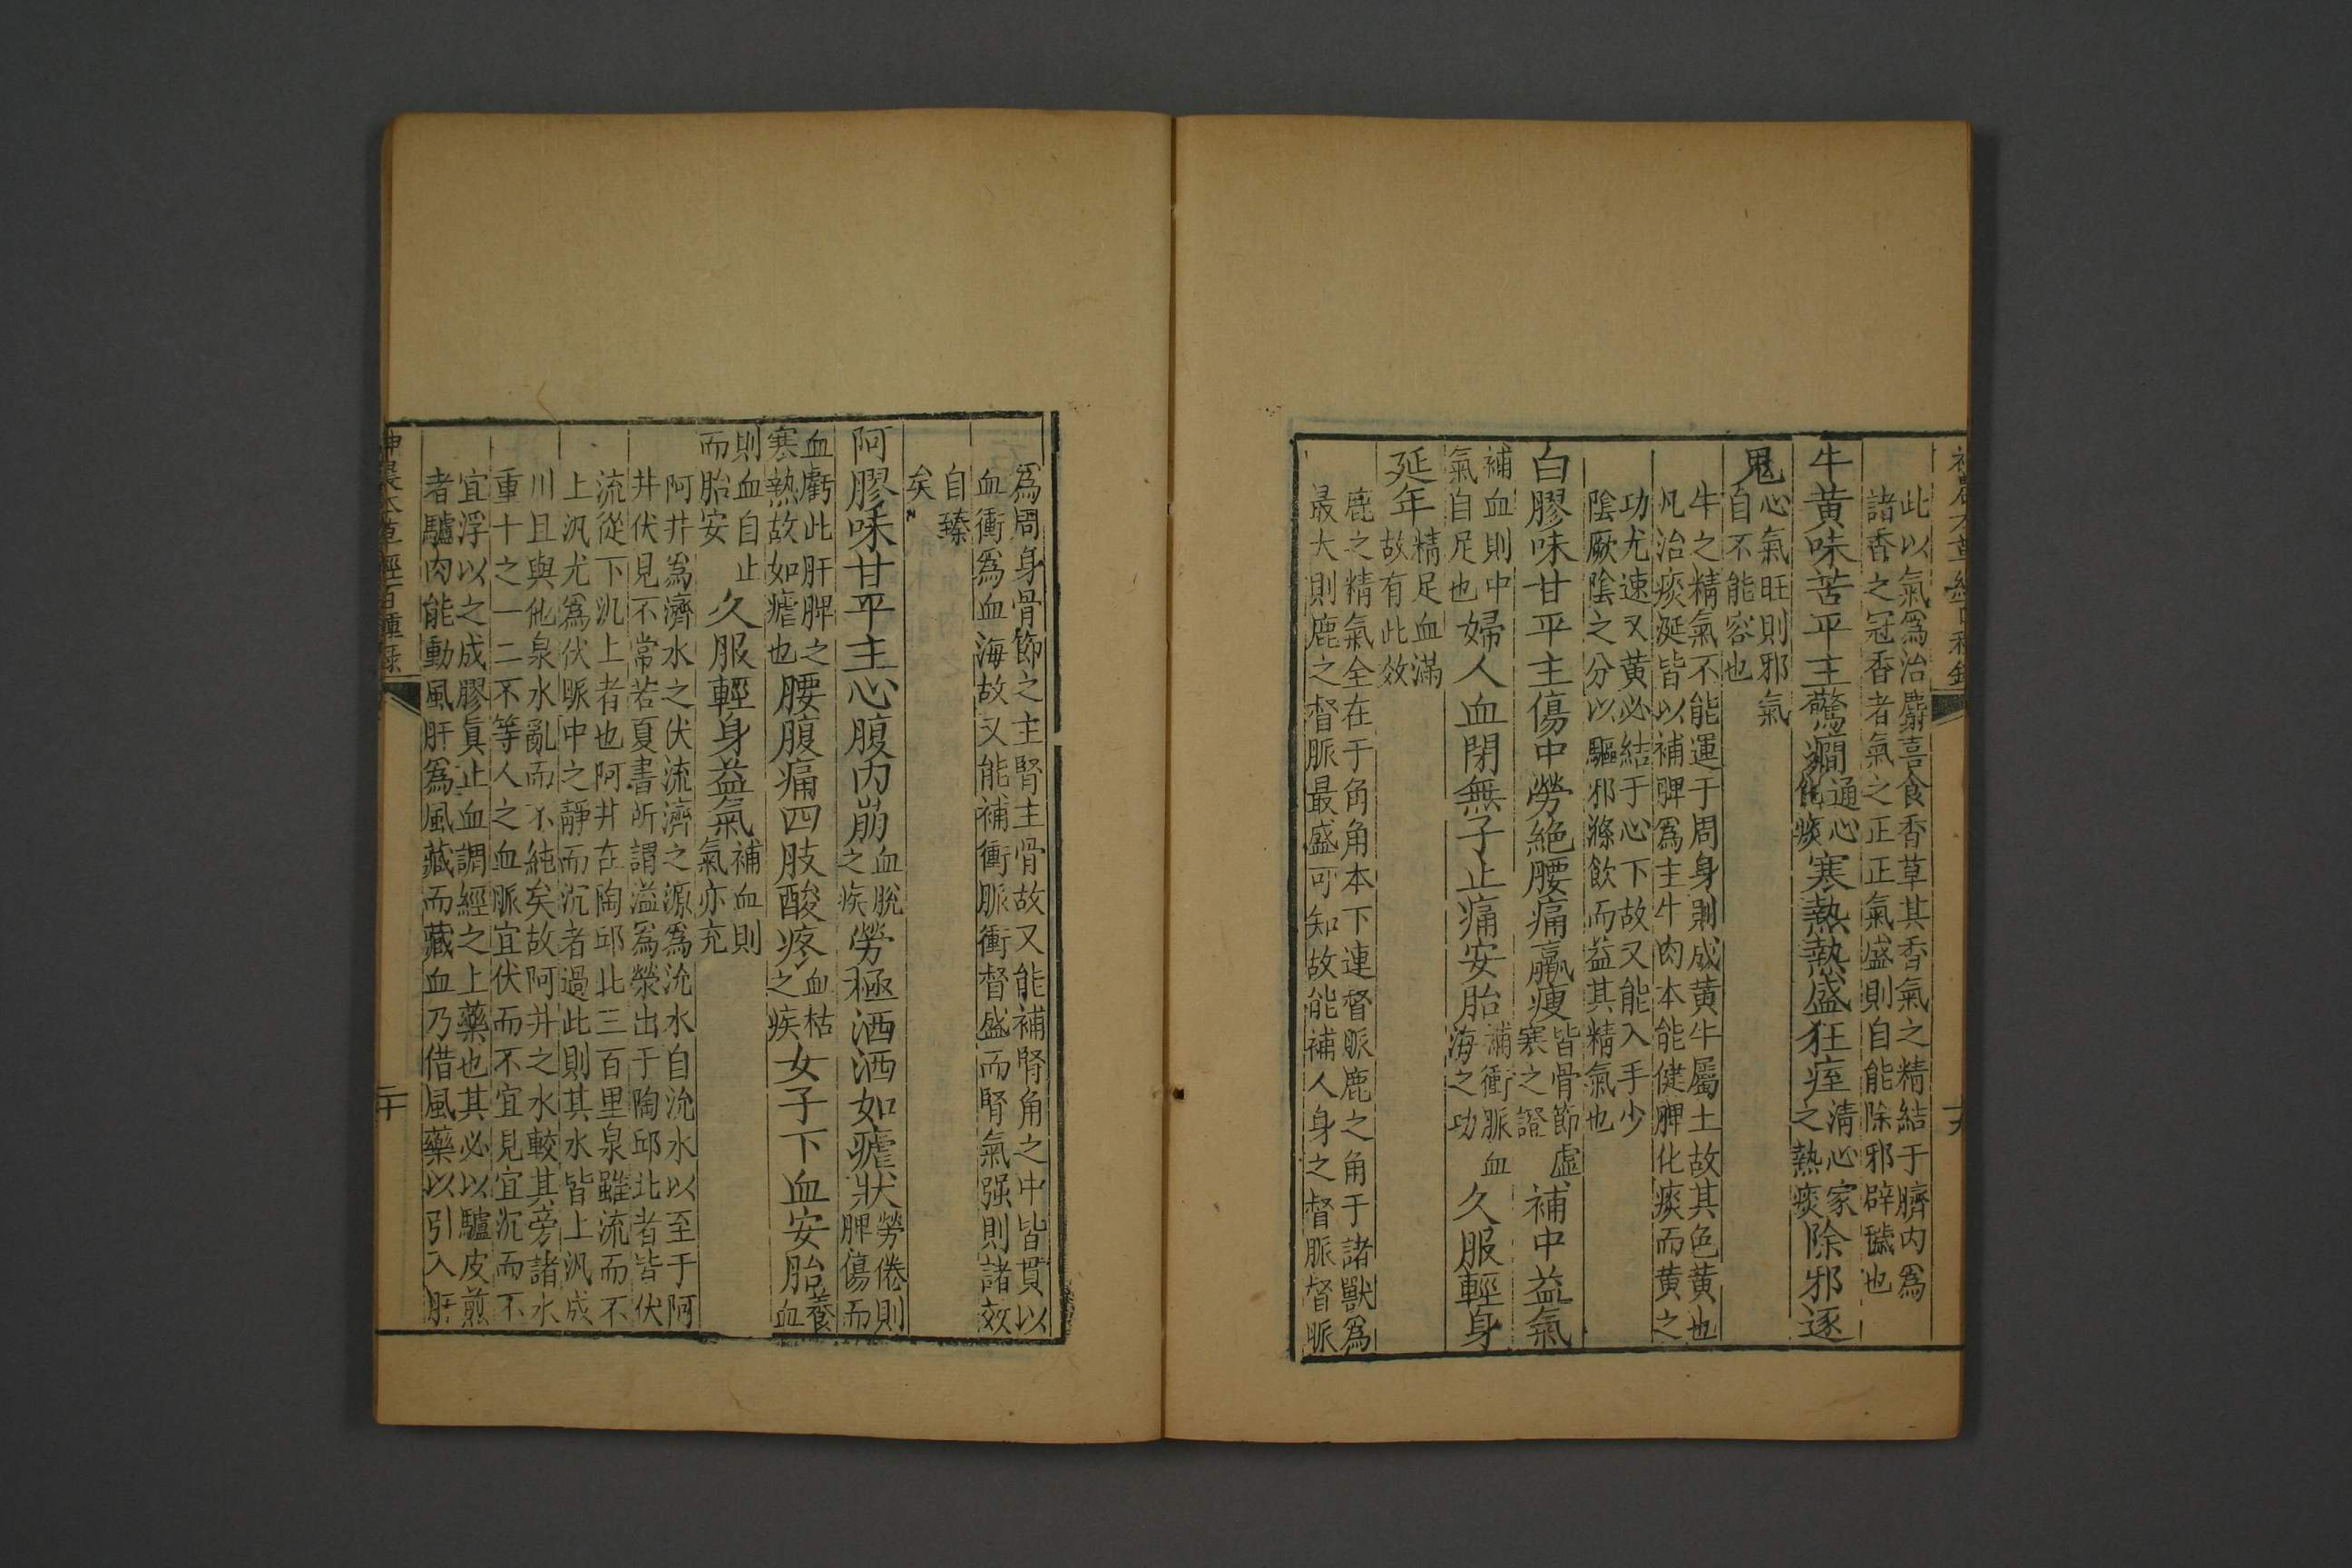 此以氣爲治麝喜食香草其香氣之精結于臍内爲
諸香之冠香者氣之正正氣盛則自能除邪辟穢也
牛黄味苦平主驚癇通心化痰寒熱熱盛狂痓清心家之熱痰除邪逐
鬼心氣旺則邪氣自不能容也
牛之精氣不能運于周身則成黄牛屬土故其色黄也
凡治痰涎皆以補脾爲主牛肉本能健脾化痰而黄之
功尤速又黄必結于心下故又能入手少
陰厥陰之分以驅邪滌飲而益其精氣也
白膠味甘平主傷中勞絶腰痛羸瘦皆骨節虛寒之證補中益氣
補血則中氣自足也婦人血閉無子止痛安胎補衝脈血海之功久服輕身
延年精足血滿故有此效
鹿之精氣全在于角角本下連督脈鹿之角于諸獸爲
最大則鹿之督脈最盛可知故能補人身之督脈督脈
神農本草經百種錄
爲周身骨節之主腎主骨故又能補腎角之中皆貫以
血衝爲血海故又能補衝脈衝督盛而腎氣强則諸效
自臻
矣
阿膠味甘平主心腹内崩血脱之疾勞極洒洒如瘧狀勞倦則脾傷而
血虧此肝脾之寒熱故如瘧也腰腹痛四肢酸疼血枯之疾女子下血安胎養血
則血自止而胎安久服輕身益氣補血則氣亦充
阿井爲濟水之伏流濟之源爲沇水自沇水以至于阿
井伏見不常若夏書所謂溢爲滎出于陶邱北者皆伏
流從下汎上者也阿井在陶邱北三百里泉雖流而不
上汎尤爲伏脈中之靜而沉者過此則其水皆上汎成
川且與他泉水亂而不純矣故阿井之水較其旁諸水
重十之一二不等人之血脈宜伏而不宜見宜沉而不
宜浮以之成膠眞止血調經之上藥也其必以驢皮煎
者驢肉能動風肝爲風藏而藏血乃借風藥以引入肝
神農本草經百種錄
二十